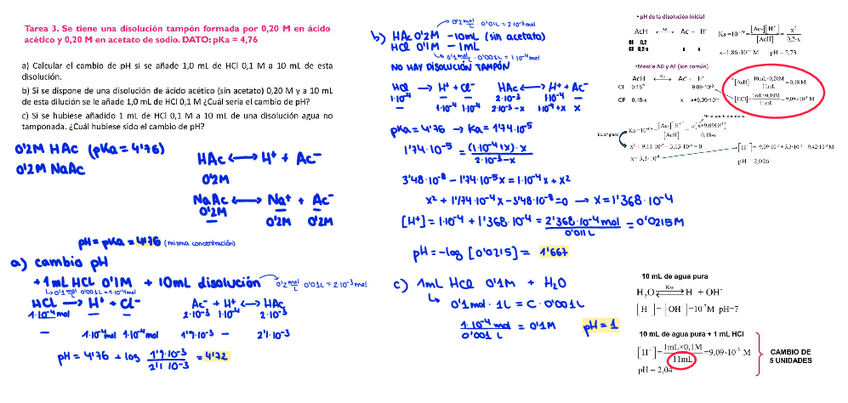 Tarea 3. Se tiene una disolución tampón formada por 0,20 M en ácido
acético y 0,20 M en acetato de sodio. DATO: pKa = 4,76
a) Calcular el cambio de pH si se añade 1,0 mL de HCl 0,1 M a 10 mL de esta
disolución.
b) Si se dispone de una disolución de ácido acético (sin acetato) 0,20 M y a 10 mL
de esta dilución se le añade 1,0 mL de HCl 0,1 M ¿Cuál sería el cambio de pH?
c) Si se hubiese añadido 1 mL de HCl 0,1 M a 10 mL de una disolución agua no
tamponada. ¿Cuál hubiese sido el cambio de pH?
0'2M HAc (pKa = 4'76)
0'2M NaAc
HAc ⟷ H⁺ + Ac⁻
0'2M
NaAc ⟷ Na⁺ + Ac⁻
0'2M — —
— 0'2M 0'2M
pH = pKa = 4'76 (misma concentración)
a) cambio pH
+ 1mL HCl 0'1M + 10mL disolución
0'2 mol/L · 0'01L = 2·10⁻³ mol
0'1 mol/L · 0'001L = 1·10⁻⁴ mol
HCl ⟶ H⁺ + Cl⁻ Ac⁻ + H⁺ ⟷ HAc
1·10⁻⁴ mol — — 2·10⁻³ 1·10⁻⁴ 2·10⁻³
— 1·10⁻⁴ mol 1·10⁻⁴ mol 1'9·10⁻³ — 2'1·10⁻³
pH = 4'76 + log 1'9·10⁻³ / 2'1·10⁻³ = 4'72
b) HAc 0'2M — 10mL (sin acetato)
0'2 mol/L · 0'01L = 2·10⁻³ mol
HCl 0'1M — 1mL
0'1 mol/L · 0'001L = 1·10⁻⁴ mol
NO HAY DISOLUCIÓN TAMPÓN
HCl ⟶ H⁺ + Cl⁻ HAc ⟷ H⁺ + Ac⁻
1·10⁻⁴ — — 2·10⁻³ 1·10⁻⁴ —
— 1·10⁻⁴ 1·10⁻⁴ 2·10⁻³-x 1·10⁻⁴+x x
pKa = 4'76 → Ka = 1'74·10⁻⁵
1'74·10⁻⁵ = (1·10⁻⁴+x)·x / 2·10⁻³-x
3'48·10⁻⁸ - 1'74·10⁻⁵x = 1·10⁻⁴x + x²
x² + 1'174·10⁻⁴x - 3'48·10⁻⁸ = 0 → x = 1'368·10⁻⁴
[H⁺] = 1·10⁻⁴ + 1'368·10⁻⁴ = 2'368·10⁻⁴ mol / 0'011 L = 0'0215M
pH = -log [0'0215] = 1'667
c) 1mL HCl 0'1M + H₂O
0'1 mol · 1L = C · 0'001L
1·10⁻⁴ mol / 0'001 L = 0'1M pH = 1
• pH de la disolución inicial
•Mezcla AD y AF (ion común)
10 mL de agua pura
H₂O ⇌ H + OH⁻
[H⁻] = [OH⁻] = 10⁻⁷ M pH=7
10 mL de agua pura + 1 mL HCl
[H⁻] = 1mL×0,1M / 11mL = 9,09·10⁻³ M
pH = 2,04
CAMBIO DE
5 UNIDADES